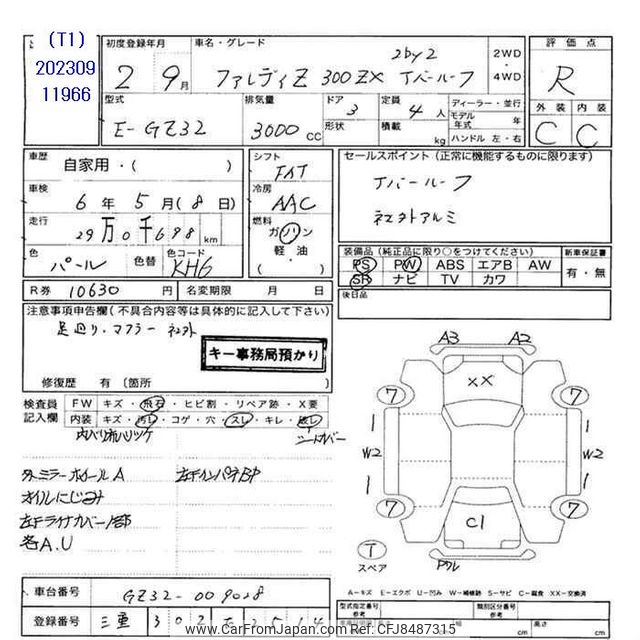 (T1)
202309
11966
初度登録年月
2 9月
車名・グレード
2by2
フェアレディZ 300ZX Tバールーフ
2WD
・
4WD
評価点
R
外装 内装
C C
型式
E-GZ32
排気量
3000 CC
ドア 3
形状
定員 4 人
積載 kg
ディーラー・並行
モデル年式 年
ハンドル 左・右
車歴
自家用・( )
車検
6 年 5 月 (8 日)
走行
29 万 0 千 698 km
色
パール
色替
色コード
KH6
シフト
FAT
冷房
AAC
燃料
ガソリン
軽油
( )
セールスポイント(正常に機能するものに限ります)
Tバールーフ
社外アルミ
装備品(純正品に限り○をつけてください)
PS PW ABS エアB AW
SR ナビ TV カワ
新車保証書
有・無
R券 10630 円
名変期限 月 日
後日品
注意事項申告欄(不具合内容等は具体的に記入して下さい)
足廻り・マフラー社外
キー事務局預かり
修復歴 有(箇所
検査員
記入欄
FW キズ・飛石・ヒビ割・リペア跡・X要
内装 キズ・汚レ・コゲ・穴・スレ・キレ・破レ
シートカバー
外ミラーホイールA
オイルにじみ
各A.U
A3 A2
XX
7 7
1 1
W2 W2
1 1
7 7
C1
T
スペア
A-キズ E-エクボ U-凹み W-補修跡 S-サビ C-腐食 XX-交換済
車台番号 GZ32-009028
登録番号 三重
型式指定番号
類別区分番号
参考
長さ cm
幅 cm
高さ cm
www.CarFromJapan.com Ref:CFJ8487315